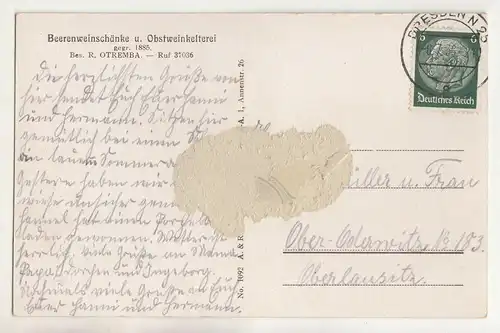 Beerenweinschänke u. Obstweinkelterei
gegr. 1885.
Bes. R. OTREMBA. — Ruf 37036
Die herzlichsten Grüße von
hier sendet Euch Euer Hanni
und Hermann. Sitzen hier
gemütlich bei einem
lauen Sommera
Gestern haben wir
wieder
laden gewonnen.
herrlich. viele Grüße an Mama
Papa, Dorchen und Ingeborg.
Nochmals viele Grüße an Euch
Euer Hanni und Hermann.
No. 1092 A. & R. A. 1, Annenstr. 26
DRESDEN N 25
6 6
Deutsches Reich
iller u. Frau
Ober-Oderwitz, No 183.
Oberlausitz.